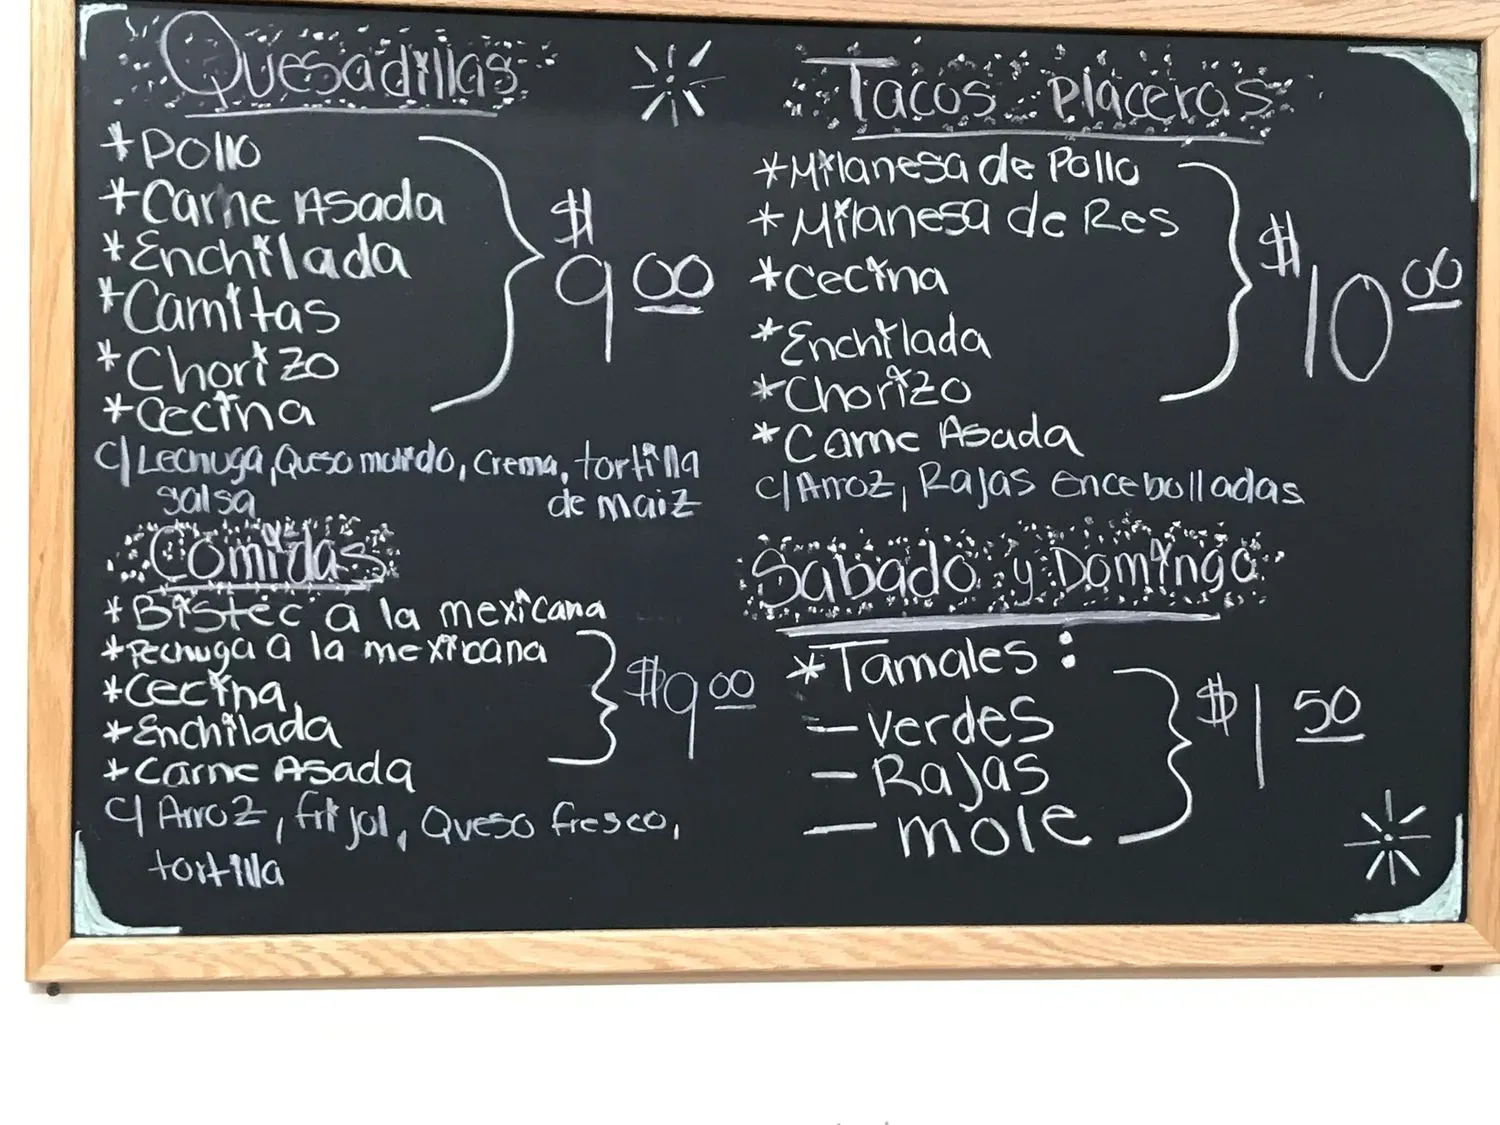 Quesadillas
*Pollo
*Carne Asada
*Enchilada
*Carnitas
*Chorizo
*Cecina
$
9 00
c/Lechuga, Queso molido, crema, tortilla
salsa de maiz
Comidas
*Bistec a la mexicana
*Pechuga a la mexicana
*Cecina
*Enchilada
*Carne Asada
$9 00
c/ Arroz, frijol, Queso fresco,
tortilla
Tacos Placeros
*Milanesa de Pollo
*Milanesa de Res
*Cecina
*Enchilada
*Chorizo
*Carne Asada
$10 00
c/Arroz, Rajas encebolladas
Sabado y Domingo
*Tamales:
- verdes
- Rajas
- mole
$1 50